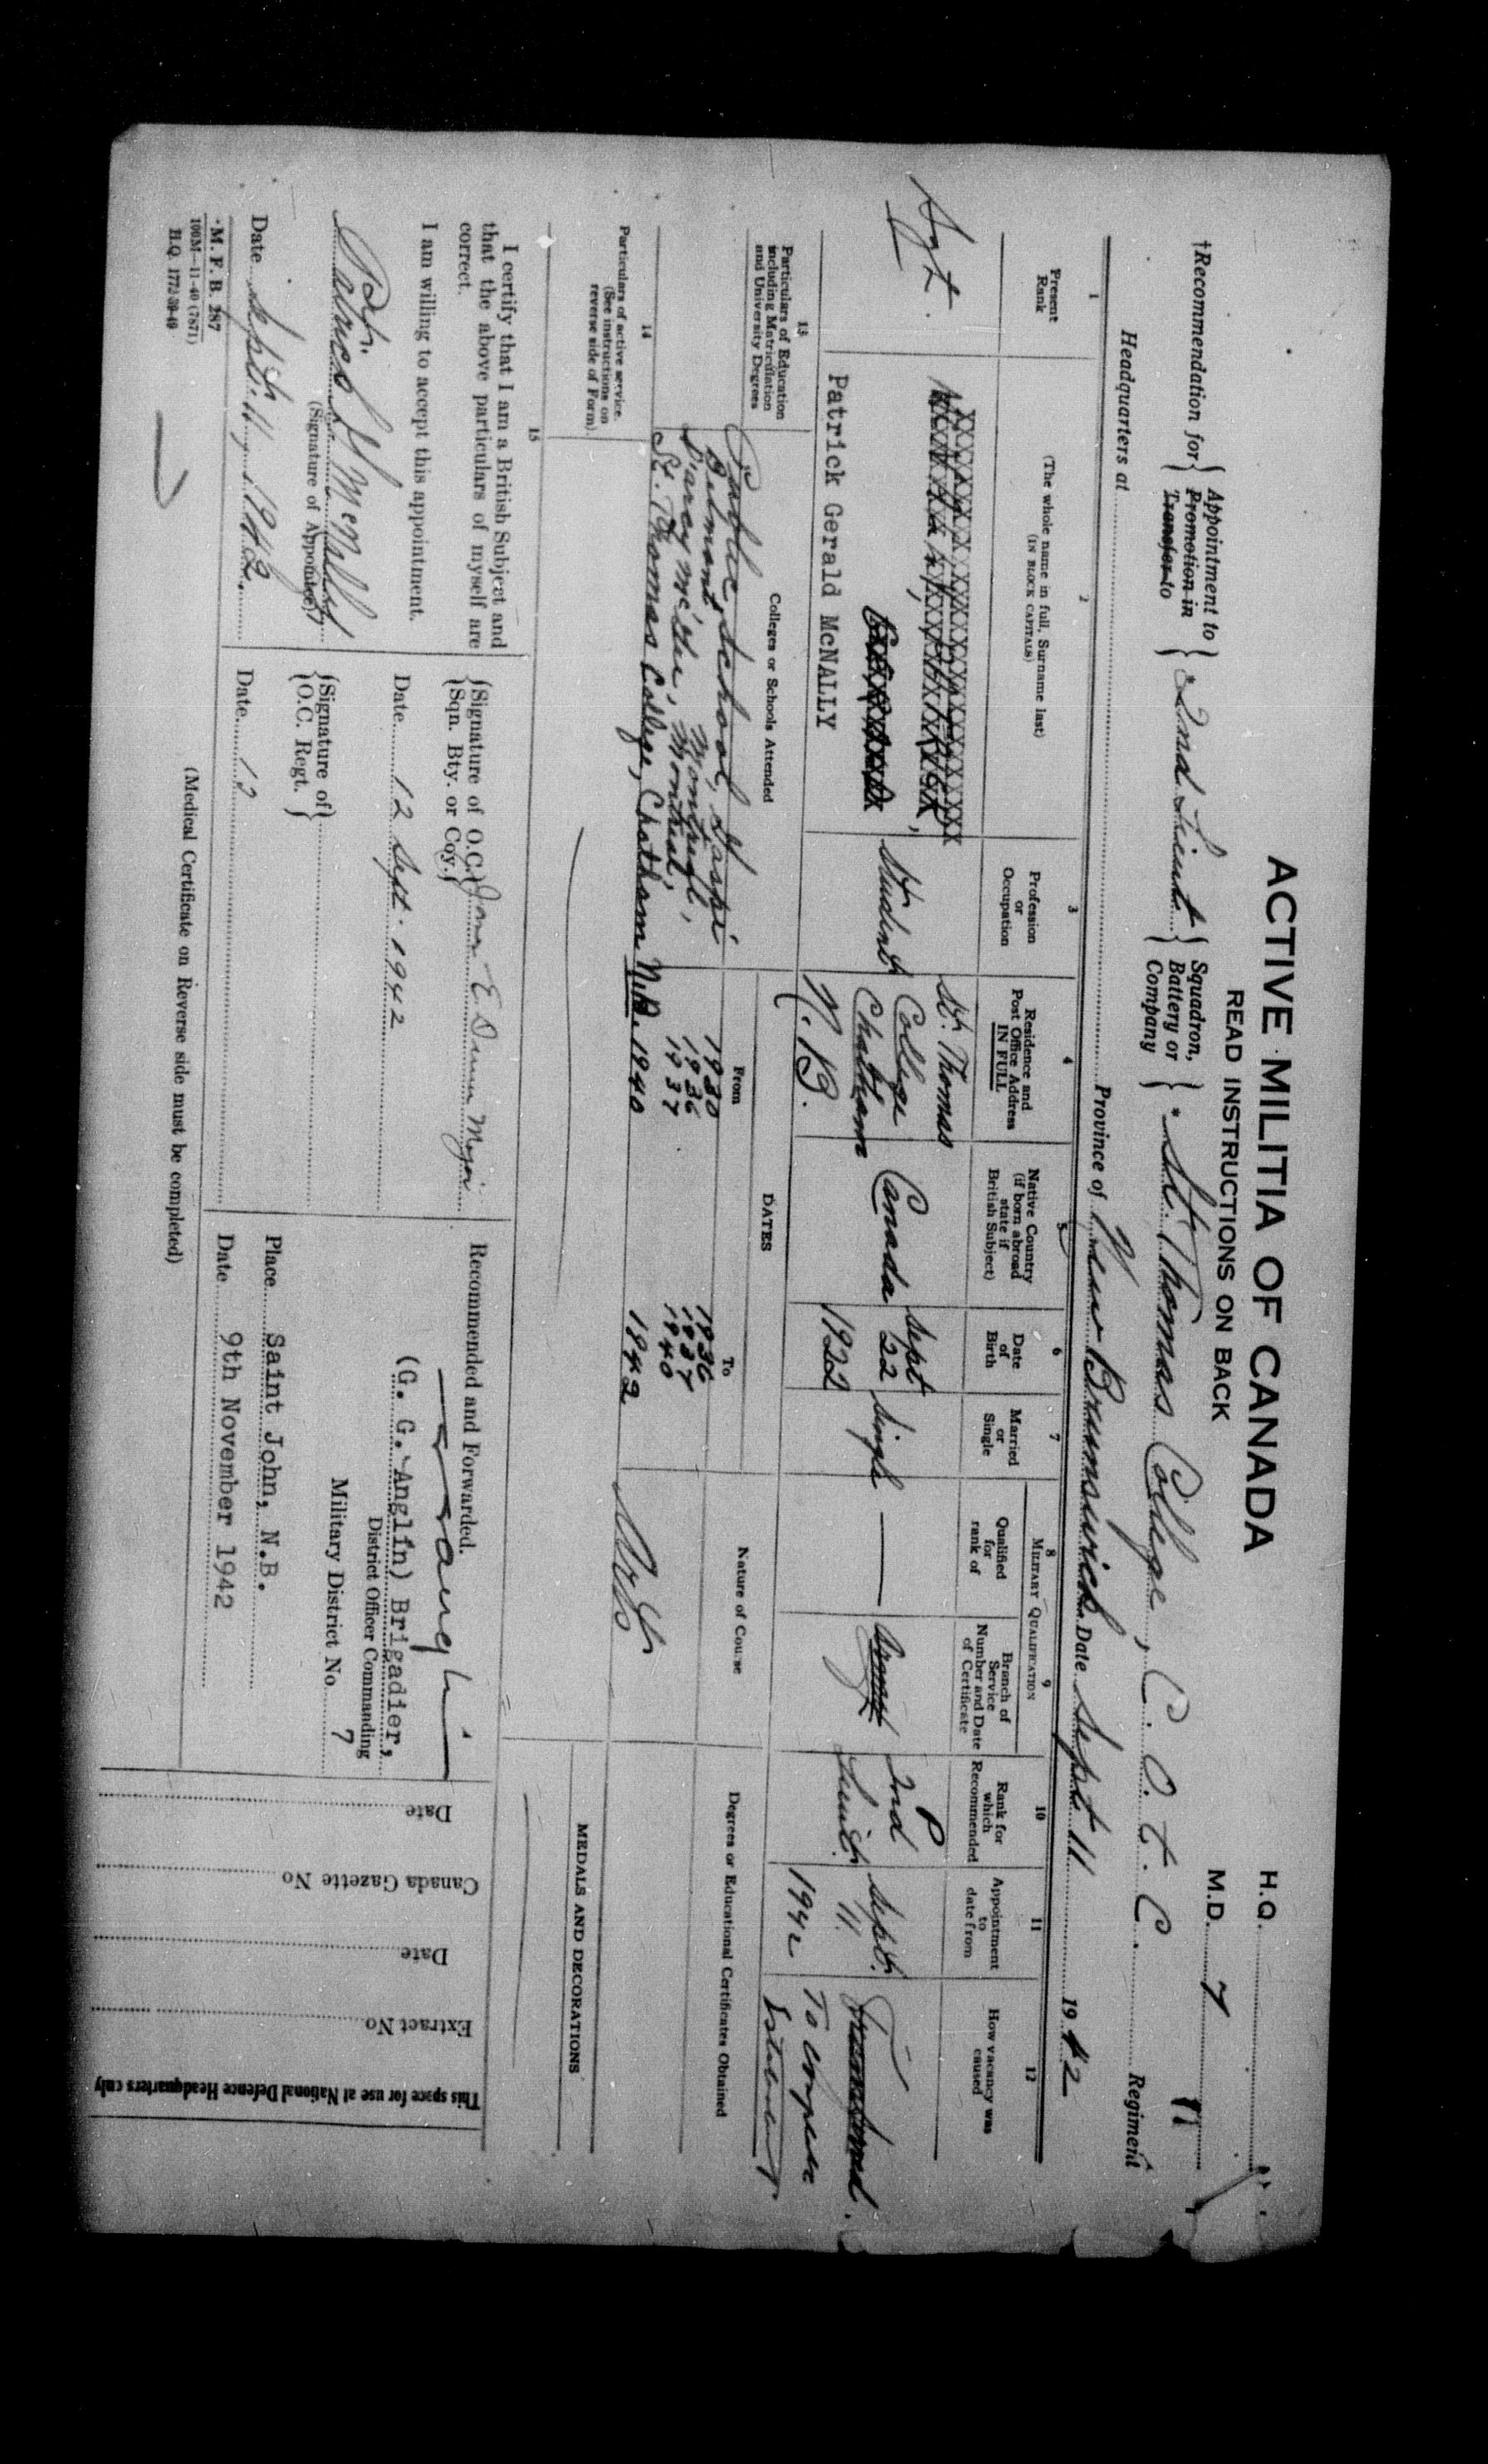 ACTIVE MILITIA OF CANADA
READ INSTRUCTIONS ON BACK
H.Q.
M.D. 7
†Recommendation for { Appointment to
Promotion in
Transfer to } 2nd Lieut { Squadron,
Battery or
Company } * St. Thomas College, C.O.T.C. Regiment
Headquarters at Province of New Brunswick Date Sept 11 1942
1
Present
Rank
2
(The whole name in full, Surname last)
(IN BLOCK CAPITALS)
3
Profession
or
Occupation
4
Residence and
Post Office Address
IN FULL
5
Native Country
(if born abroad
state if
British Subject)
6
Date
of
Birth
7
Married
or
Single
MILITARY QUALIFICATION
8
Qualified
for
rank of
9
Branch of
Service
Number and Date
of Certificate
10
Rank for
which
Recommended
11
Appointment
to
date from
12
How vacancy was
caused
Sgt.
Patrick Gerald McNALLY
Student
St. Thomas
College
Chatham
N.B.
Canada
Sept
22
1922
Single
—
Army
P
2nd
Lieut.
Sept.
11.
1942
To complete
13
Particulars of Education
including Matriculation
and University Degrees
Colleges or Schools Attended
DATES
From
To
Nature of Course
Degrees or Educational Certificates Obtained
Public School, Gaspé 1930 1936
Belmont, Montreal, 1936 1937
D'arcy McGee, Montreal, 1937 1940
St. Thomas College, Chatham N.B. 1940 1942
Arts
14
Particulars of active service.
(See instructions on
reverse side of Form).
MEDALS AND DECORATIONS
15
I certify that I am a British Subject and
that the above particulars of myself are
correct.
I am willing to accept this appointment.
Patrick G McNally
(Signature of Appointee)
Date Sept. 11, 1942.
{Signature of O.C.
Sqn. Bty. or Coy.} Dunn Major
Date 12 Sept. 1942
{Signature of
O.C. Regt. }
Date 12
Recommended and Forwarded.
(G. G. Anglin) Brigadier,
District Officer Commanding
Military District No. 7
Place Saint John, N.B.
Date 9th November 1942
Date
Canada Gazette No
Date
Extract No
This space for use at National Defence Headquarters only
M. F. B. 287
100M—11-40 (7871)
H.Q. 1772-39-49
(Medical Certificate on Reverse side must be completed)